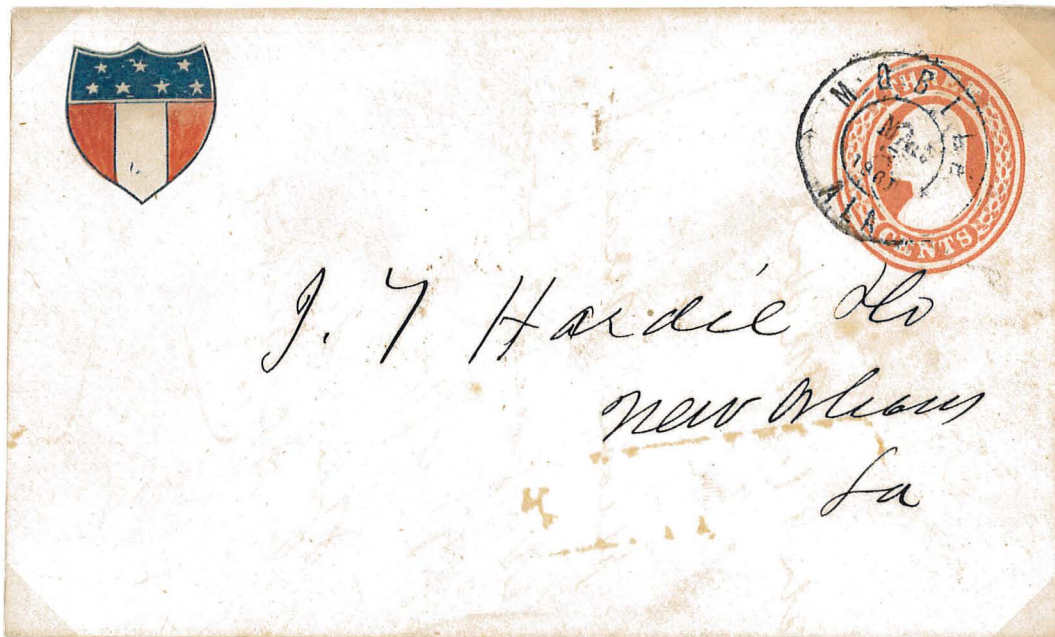 MOBILE
ALA
THREE
CENTS
J. T Hardie &Co
New Orleans
La